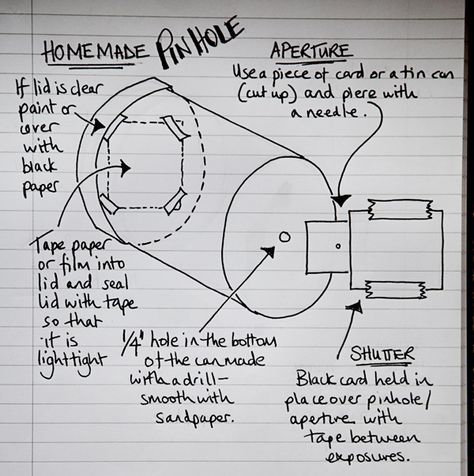 HOMEMADE PINHOLE
If lid is clear
paint or
cover
with
black
paper
APERTURE
Use a piece of card or a tin can
(cut up) and pierce with
a needle.
Tape paper
or film into
lid and seal
lid with tape
so that
it is
lighttight
1/4" hole in the bottom
of the can made
with a drill-
smooth with
sandpaper.
SHUTTER
Black card held in
place over pinhole/
aperture with
tape between
exposures.